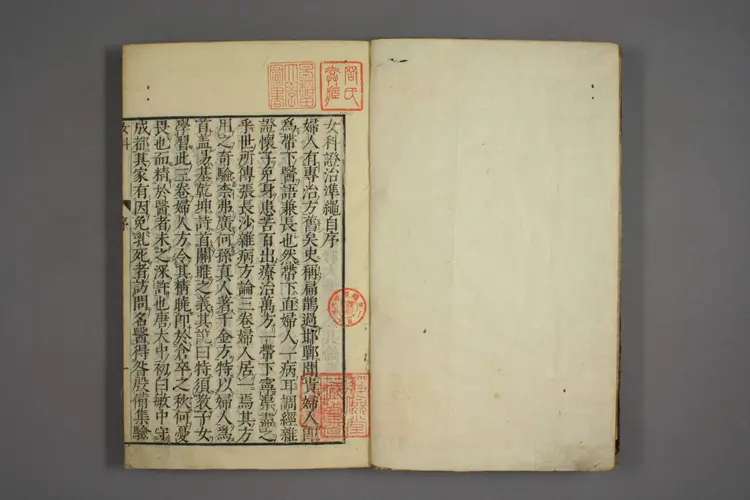 女科證治準繩自序
婦人有專治方舊矣史稱扁鵲過邯鄲聞貴婦人即
爲帶下醫語兼長也然帶下直婦人一病耳調經雜
證懷子免身患苦百出療治萬方一帶下寧遽盡之
乎世所傳張長沙雜病方論三卷婦人居一焉其方
用之奇驗柰弗廣何孫眞人著千金方特以婦人爲
首盖易基乾坤詩首關雎之義其說曰特須教子女
學習此三卷婦人方令其精曉即於倉卒之秋何憂
畏也而精於醫者未之深許也唐大中初白敏中守
成都其家有因免乳死者訪問名醫得昝殷備集驗
女科
序
一